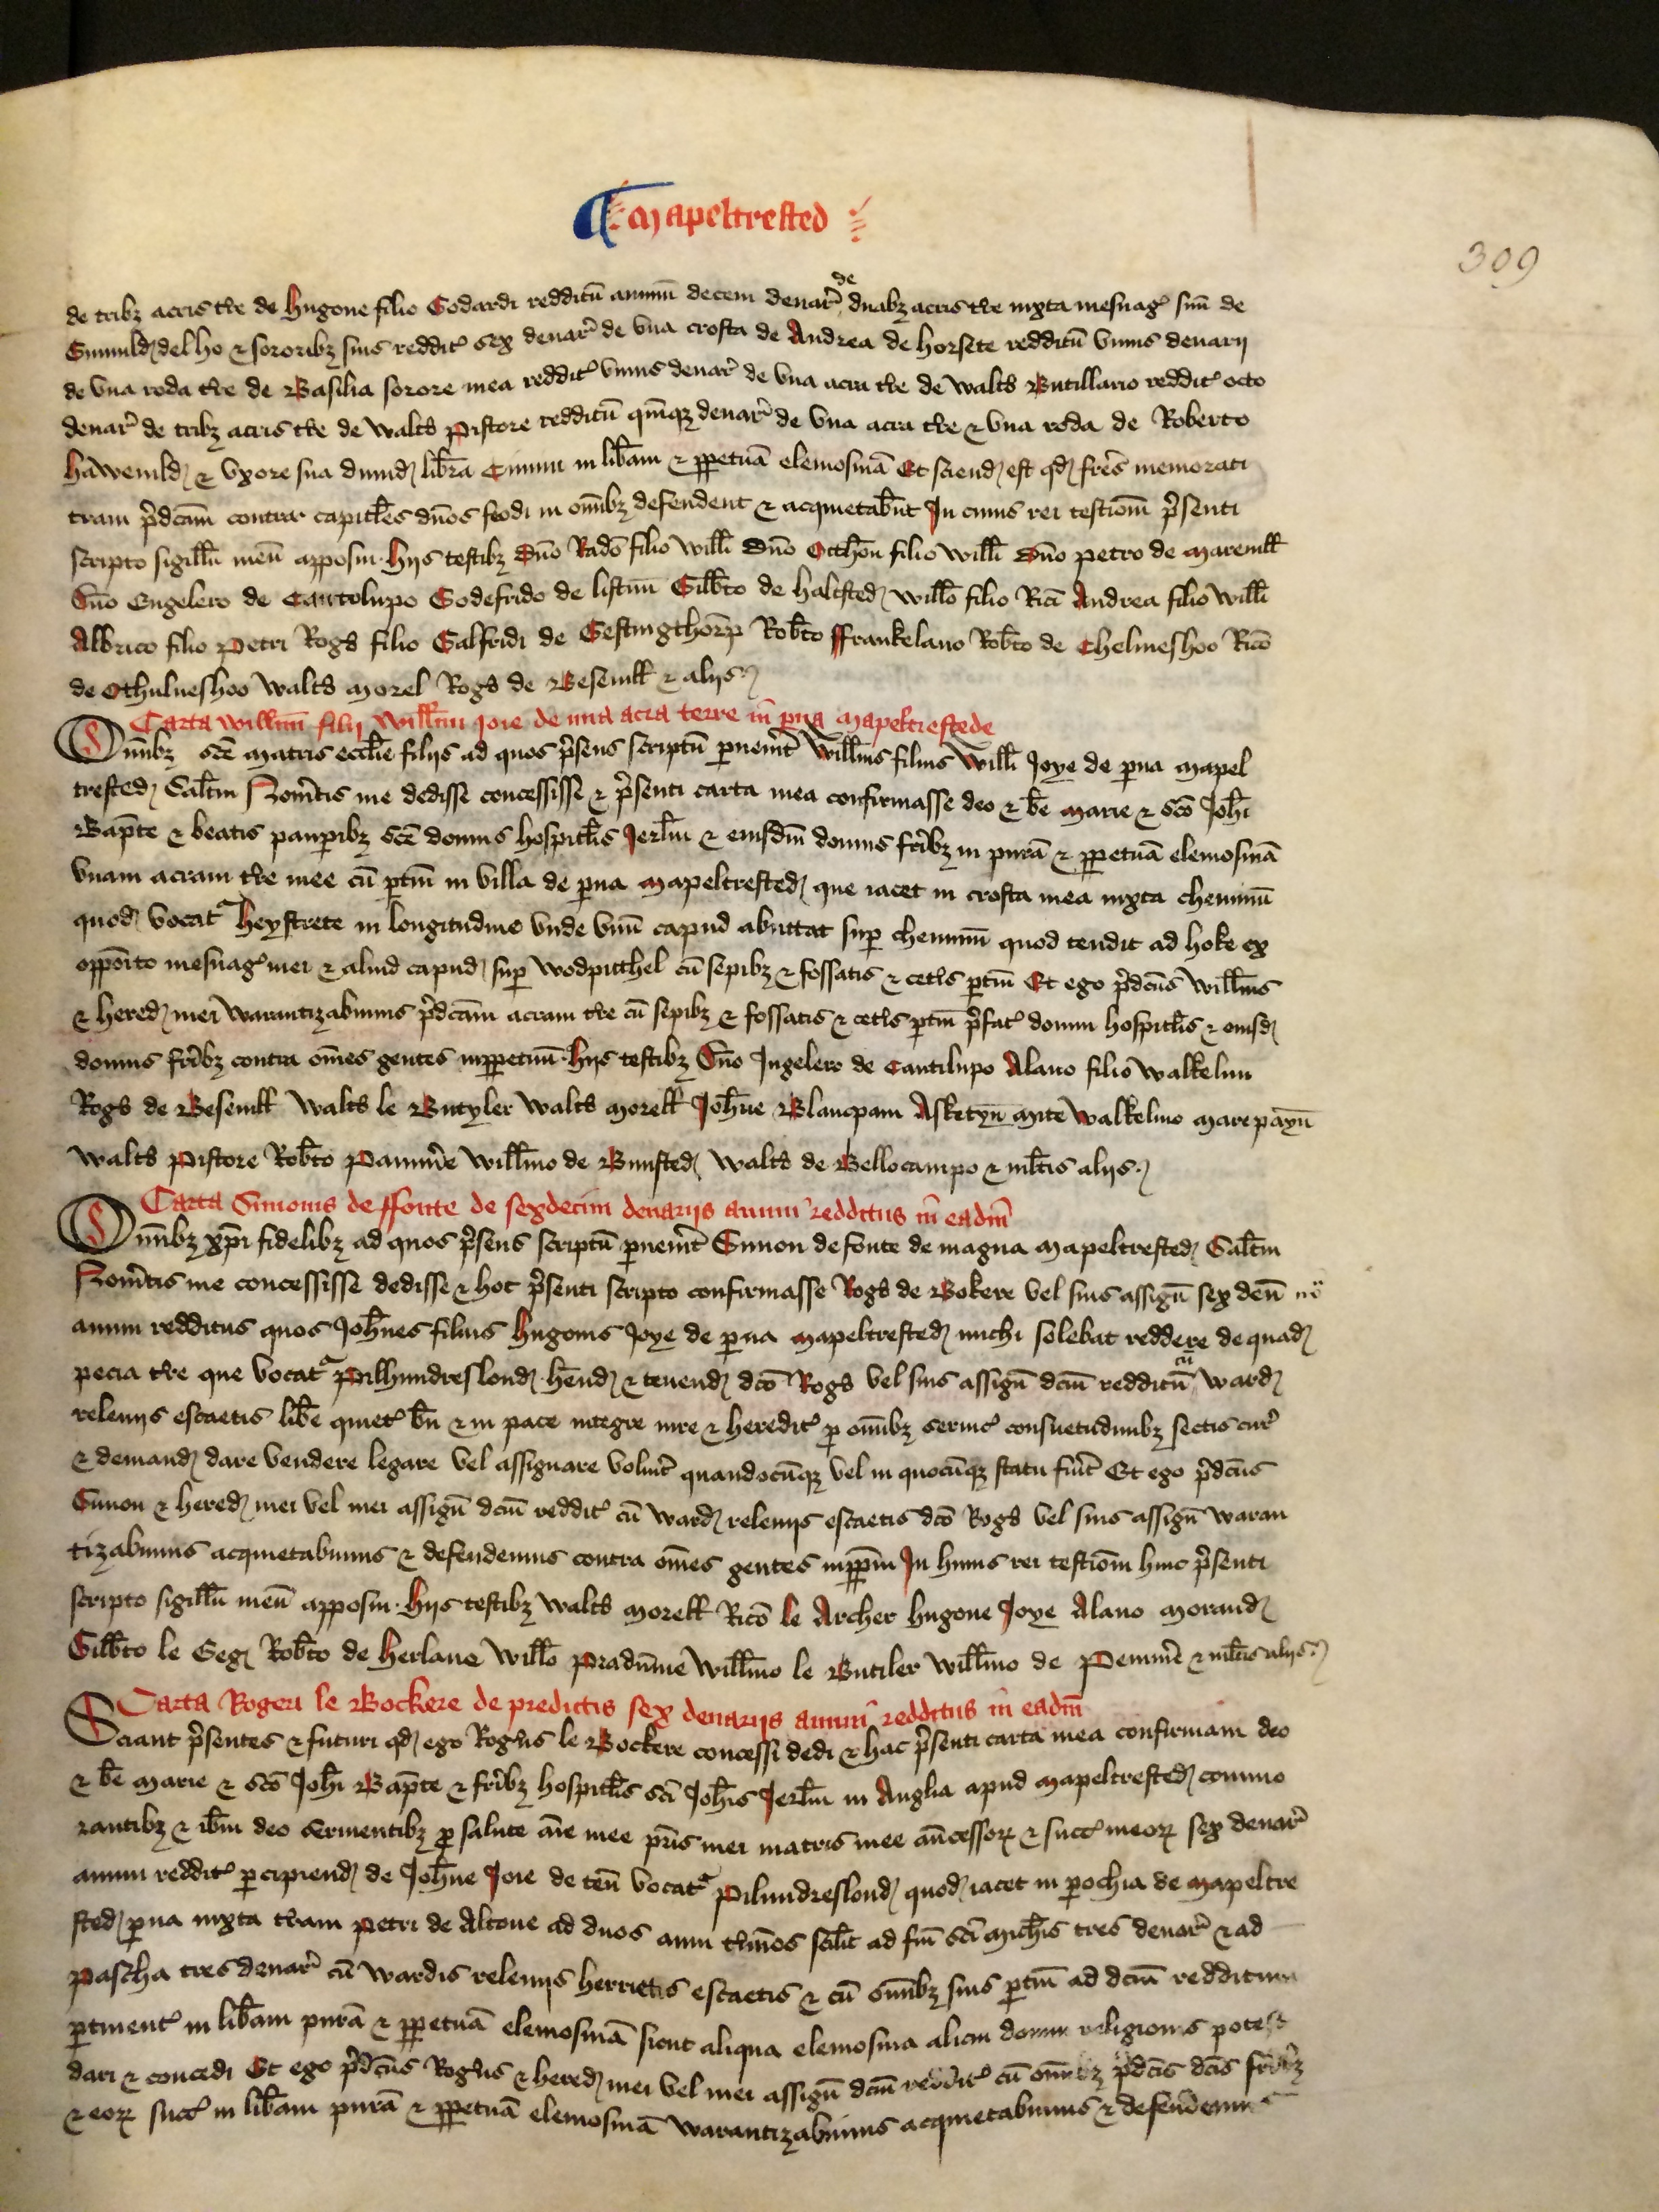 ¶ Mapeltrested
309
de tribȝ acris tr̄e de Hugone filio Godardi redditū annuū decem denar̉ de duabȝ acris tr̄e iuxta mesuag̉ suū de
Gunnild̉ del ho ⁊ sororibȝ suis reddit̉ sex denar̉ de vna crofta de Andrea de Horsete redditū vnius denarij
de vna roda tr̄e de Basilia sorore mea reddit̉ vnius denar̉ de vna acra tr̄e de Walt̄o Butillario reddit̉ octo
denar̉ de tribȝ acris tr̄e de Walt̄o Pistore redditū quīqȝ denar̉ de vna acra tr̄e ⁊ vna roda de Roberto
Hawenild̉ ⁊ vxore sua dimid̉ libra Cimini in lib̄am ⁊ ꝑpetuā elemosinā Et sciend̉ est qd̉ fr̄es memorati
tram p̉dc̄am contra capitl̄es dn̄os feodi in om̄ibȝ defendent ⁊ acquietab̄nt In cuius rei testiom̄ p̉senti
scripto sigillū meū apposui. Hijs testibȝ Dn̄o Rad̄o filio Willi Dn̄o Otthōn filio Willi Dn̄o Petro de Marenill
Dn̄o Engelero de Cantolupo Godefrido de listun̄ Gilb̄to de Halcsted̉ Will̄o filio Ric̄i Andrea filio Willi
Albrico filio Petri Rog̉o filio Galfridi de Gestingthorp̄ Rob̄to ffrankelano Rob̄to de Chelmeshoo Ric̄o
de Othulueshoo Walt̄o Morel Rog̉o de Beseuill ⁊ alijs.
Carta Willm̄i filij Willm̄i Joie de una acra terre in ꝑua Mapeltrestede
Om̄ibȝ sc̄e matris eccl̄ie filijs ad quos p̉sens scriptū ꝑuen̄it Willm̄s filius Willi Joye de ꝑua Mapel
trested̉ Salt̄m Noủitis me dedisse concessisse ⁊ p̉senti carta mea confirmasse deo ⁊ b̄e Marie ⁊ sc̄o Joh̄i
Bap̄te ⁊ beatis pauꝑibȝ sc̄e domus hospitl̄is Jerl̄m ⁊ eiusdm̄ domus fr̄ibȝ in purā ⁊ ꝑpetuā elemosinā
vnam acram tr̄e mee cū ꝑtin̄ in villa de ꝑua Mapeltrested̉ que iacet in crofta mea iuxta cheminū
quod̉ vocat̉ Heystrete in longitudine vnde vnū capud abuttat suꝑ cheminū quod tendit ad Hoke ex
oppōito mesuag̉ mei ⁊ aliud capud̉ suꝑ Wodpitthel cū sepibȝ ⁊ fossatis ⁊ cet̄is ꝑtin̄ Et ego p̉dc̄us Willm̄s
⁊ hered̉ mei warantizabimus p̉dc̄am acram tr̄e cū sepibȝ ⁊ fossatis ⁊ cet̄is ꝑtin̄ p̉fat̉ domui hospitl̄is ⁊ eiusd̉
domus fr̄ibȝ contra om̄es gentes inꝑpetuū. Hijs testibȝ Dn̄o Ingelero de Cantilupo Alano filio Walkelini
Rog̉o de Beseuill Walt̄o le Butyler Walt̄o Morell Joh̄ne Blancpain Asketyn̄ Mite Walkelino Marepayn̄
Walt̄o Pistore Rob̄to Pannur̄e Willm̄o de Bumsted̉ Walt̄o de Bellocampo ⁊ ml̄tis alijs.
Carta Simonis de ffonte de sexdecim denarijs annui redditus in eadm̄
Om̄ibȝ xp̄i fidelibȝ ad quos p̉sens scriptū ꝑuen̄it Simon de fonte de magna Mapeltrested̉ Salt̄m
Noủitis me concessisse dedisse ⁊ hoc p̉senti scripto confirmasse Rog̉o de Bokere vel suis assign̄ sex den̄
annui redditus quos Joh̄nes filius Hugonis Joye de ꝑua Mapeltrested̉ michi solebat reddere de quad̉
pecia tr̄e que vocat̉ Pilhundreslond̉ hend̉ ⁊ tenend̉ dc̄o Rog̉o vel suis assign̄ dc̄m redditū cū Ward̉
releuijs escaetis lib̄e quiet̉ bn̄ ⁊ in pace integre iure ⁊ heredit̉ ꝑ om̄ibȝ seruic̉ consuetudinibȝ sectis cur̉
⁊ demand̉ dare vendere legare vel assignare volủit quandocūqȝ vel in quocūqȝ statu fủit Et ego p̉dc̄us
Simon ⁊ hered̉ mei vel mei assign̄ dc̄m reddit̉ cū ward̉ releuijs escaetis dc̄o Rog̉o vel suis assign̄ waran
tizabimus acquietabimus ⁊ defendemus contra om̄es gentes inꝑpm̄ In huius rei testiom̄ huic p̉senti
scripto sigillū meū apposui. Hijs testibȝ Walt̄o Morell Ric̄o le Archer Hugone Joye Alano Morand̉
Gilb̄to le Geg̉ Rob̄to de Herlaue Will̄o Pradum̄e Willm̄o le Butiler Willm̄o de Penmer̉ ⁊ ml̄tis alijs.
Carta Rogeri le Bockere de predictis sex denarijs annui redditus in eadm̄
Sciant p̉sentes ⁊ futuri qd̉ ego Rog̉us le Bockere concessi dedi ⁊ hac p̉senti carta mea confirmaui deo
⁊ b̄e Marie ⁊ sc̄o Joh̄i Bap̄te ⁊ fr̄ibȝ hospitl̄is sc̄i Joh̄is Jerl̄m in Anglia apud Mapeltrested̉ commo
rantibȝ ⁊ ib̄m deo seruientibȝ ꝓ salute aīe mee pr̄is mei matris mee an̄cessorꝝ ⁊ succ̉ meorꝝ sex denar̉
annui reddit̉ ꝑcipiend̉ de Joh̄ne Joie de ten̄ vocat̉ Pilundreslond̉ quod̉ iacet in ꝑochia de Mapeltre
sted̉ ꝑua iuxta tr̄am Petri de Altone ad duos anni tm̄inos scil̄t ad fm̄ sc̄i Mich̄is tres denar̉ ⁊ ad
Pascha tres denar̉ cū wardis releuijs herrietis escaetis ⁊ cū om̄ibȝ suis ꝑtin̄ ad dc̄m redditum
ꝑtinent̉ in lib̄am purā ⁊ ꝑpetuā elemosinā sicut aliqua elemosina alicui domui religionis potest
dari ⁊ concedi Et ego p̉dc̄us Rog̉us ⁊ hered̉ mei vel mei assign̄ dc̄m reddit̉ cū om̄ibȝ p̉dc̄is dc̄is fr̄ibȝ
⁊ eorꝝ succ̉ in lib̄am purā ⁊ ꝑpetuā elemosinā warantizabimus acquietabimus ⁊ defendemus